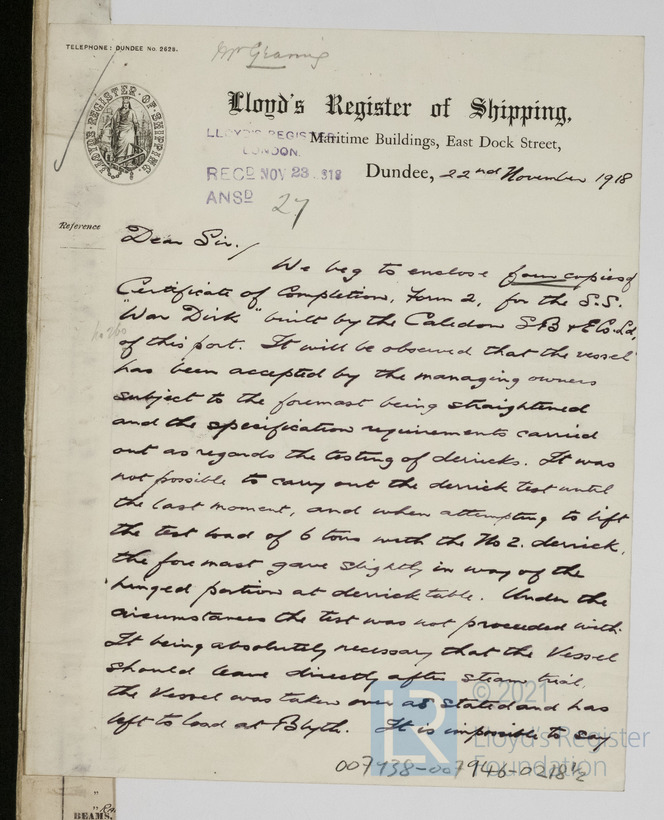 TELEPHONE: DUNDEE No. 2625.
Mr Gearing
LLOYD'S REGISTER OF SHIPPING.
Lloyd's Register of Shipping,
LLOYD'S REGISTER
LONDON.
Maritime Buildings, East Dock Street,
RECD NOV 23 318
Dundee, 22nd November 1918
ANSD 27
Reference
Dear Sir,
We beg to enclose four copies of
Certificate of Completion, Form 2, for the S.S.
"War Dirk" built by the Caledon S.B & E Co. Ld,
of this port. It will be observed that the vessel
has been accepted by the managing owners
subject to the foremast being straightened
and the specification requirements carried
out as regards the testing of derricks. It was
not possible to carry out the derrick test until
the last moment, and when attempting to lift
the test load of 6 tons with the No 2. derrick,
the foremast gave slightly in way of the
hinged portion at derrick table. Under the
circumstances the test was not proceeded with.
It being absolutely necessary that the Vessel
should leave directly after steam trial,
the Vessel was taken over as stated and has
left to load at Blyth. It is impossible to say
© 2021
LR
Lloyd's Register
Foundation
007938-007946-0218½
BEAMS,